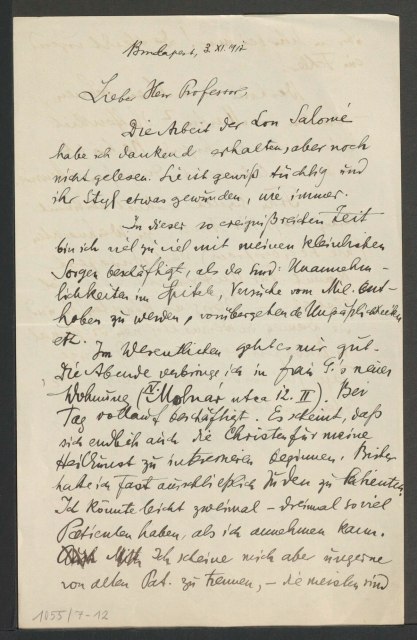 Budapest, 3. XI. 1917
Lieber Herr Professor,
Die Arbeit der Lou Salomé
habe ich dankend erhalten, aber noch
nicht gelesen. Sie ist gewiß tüchtig und
ihr Styl etwas gewunden, wie immer.
In dieser so ereignißreichen Zeit
bin ich viel zu viel mit meinen kleinlichen
Sorgen beschäftigt, als da sind: Unannehm-
lichkeiten im Spitale, Versuche vom Mil. ent-
hoben zu werden, vorübergehende Unpäßlichkeiten
etc.
Im Wesentlichen geht es mir gut.
Die Abende verbringe ich in Frau G.'s neuer
Wohnung (V. Molnár utca 12. II). Bei
Tag vollauf beschäftigt. Es scheint, daß
sich endlich auch die Christen für meine
Heilkunst zu interessieren beginnen. Bisher
hatte ich fast ausschließlich Juden zu Patienten.
Ich könnte leicht zweimal – dreimal so viel
Patienten haben, als ich annehmen kann.
Ich scheine mich aber ungerne
von alten Pat. zu trennen, – die meisten sind
1055/7-12